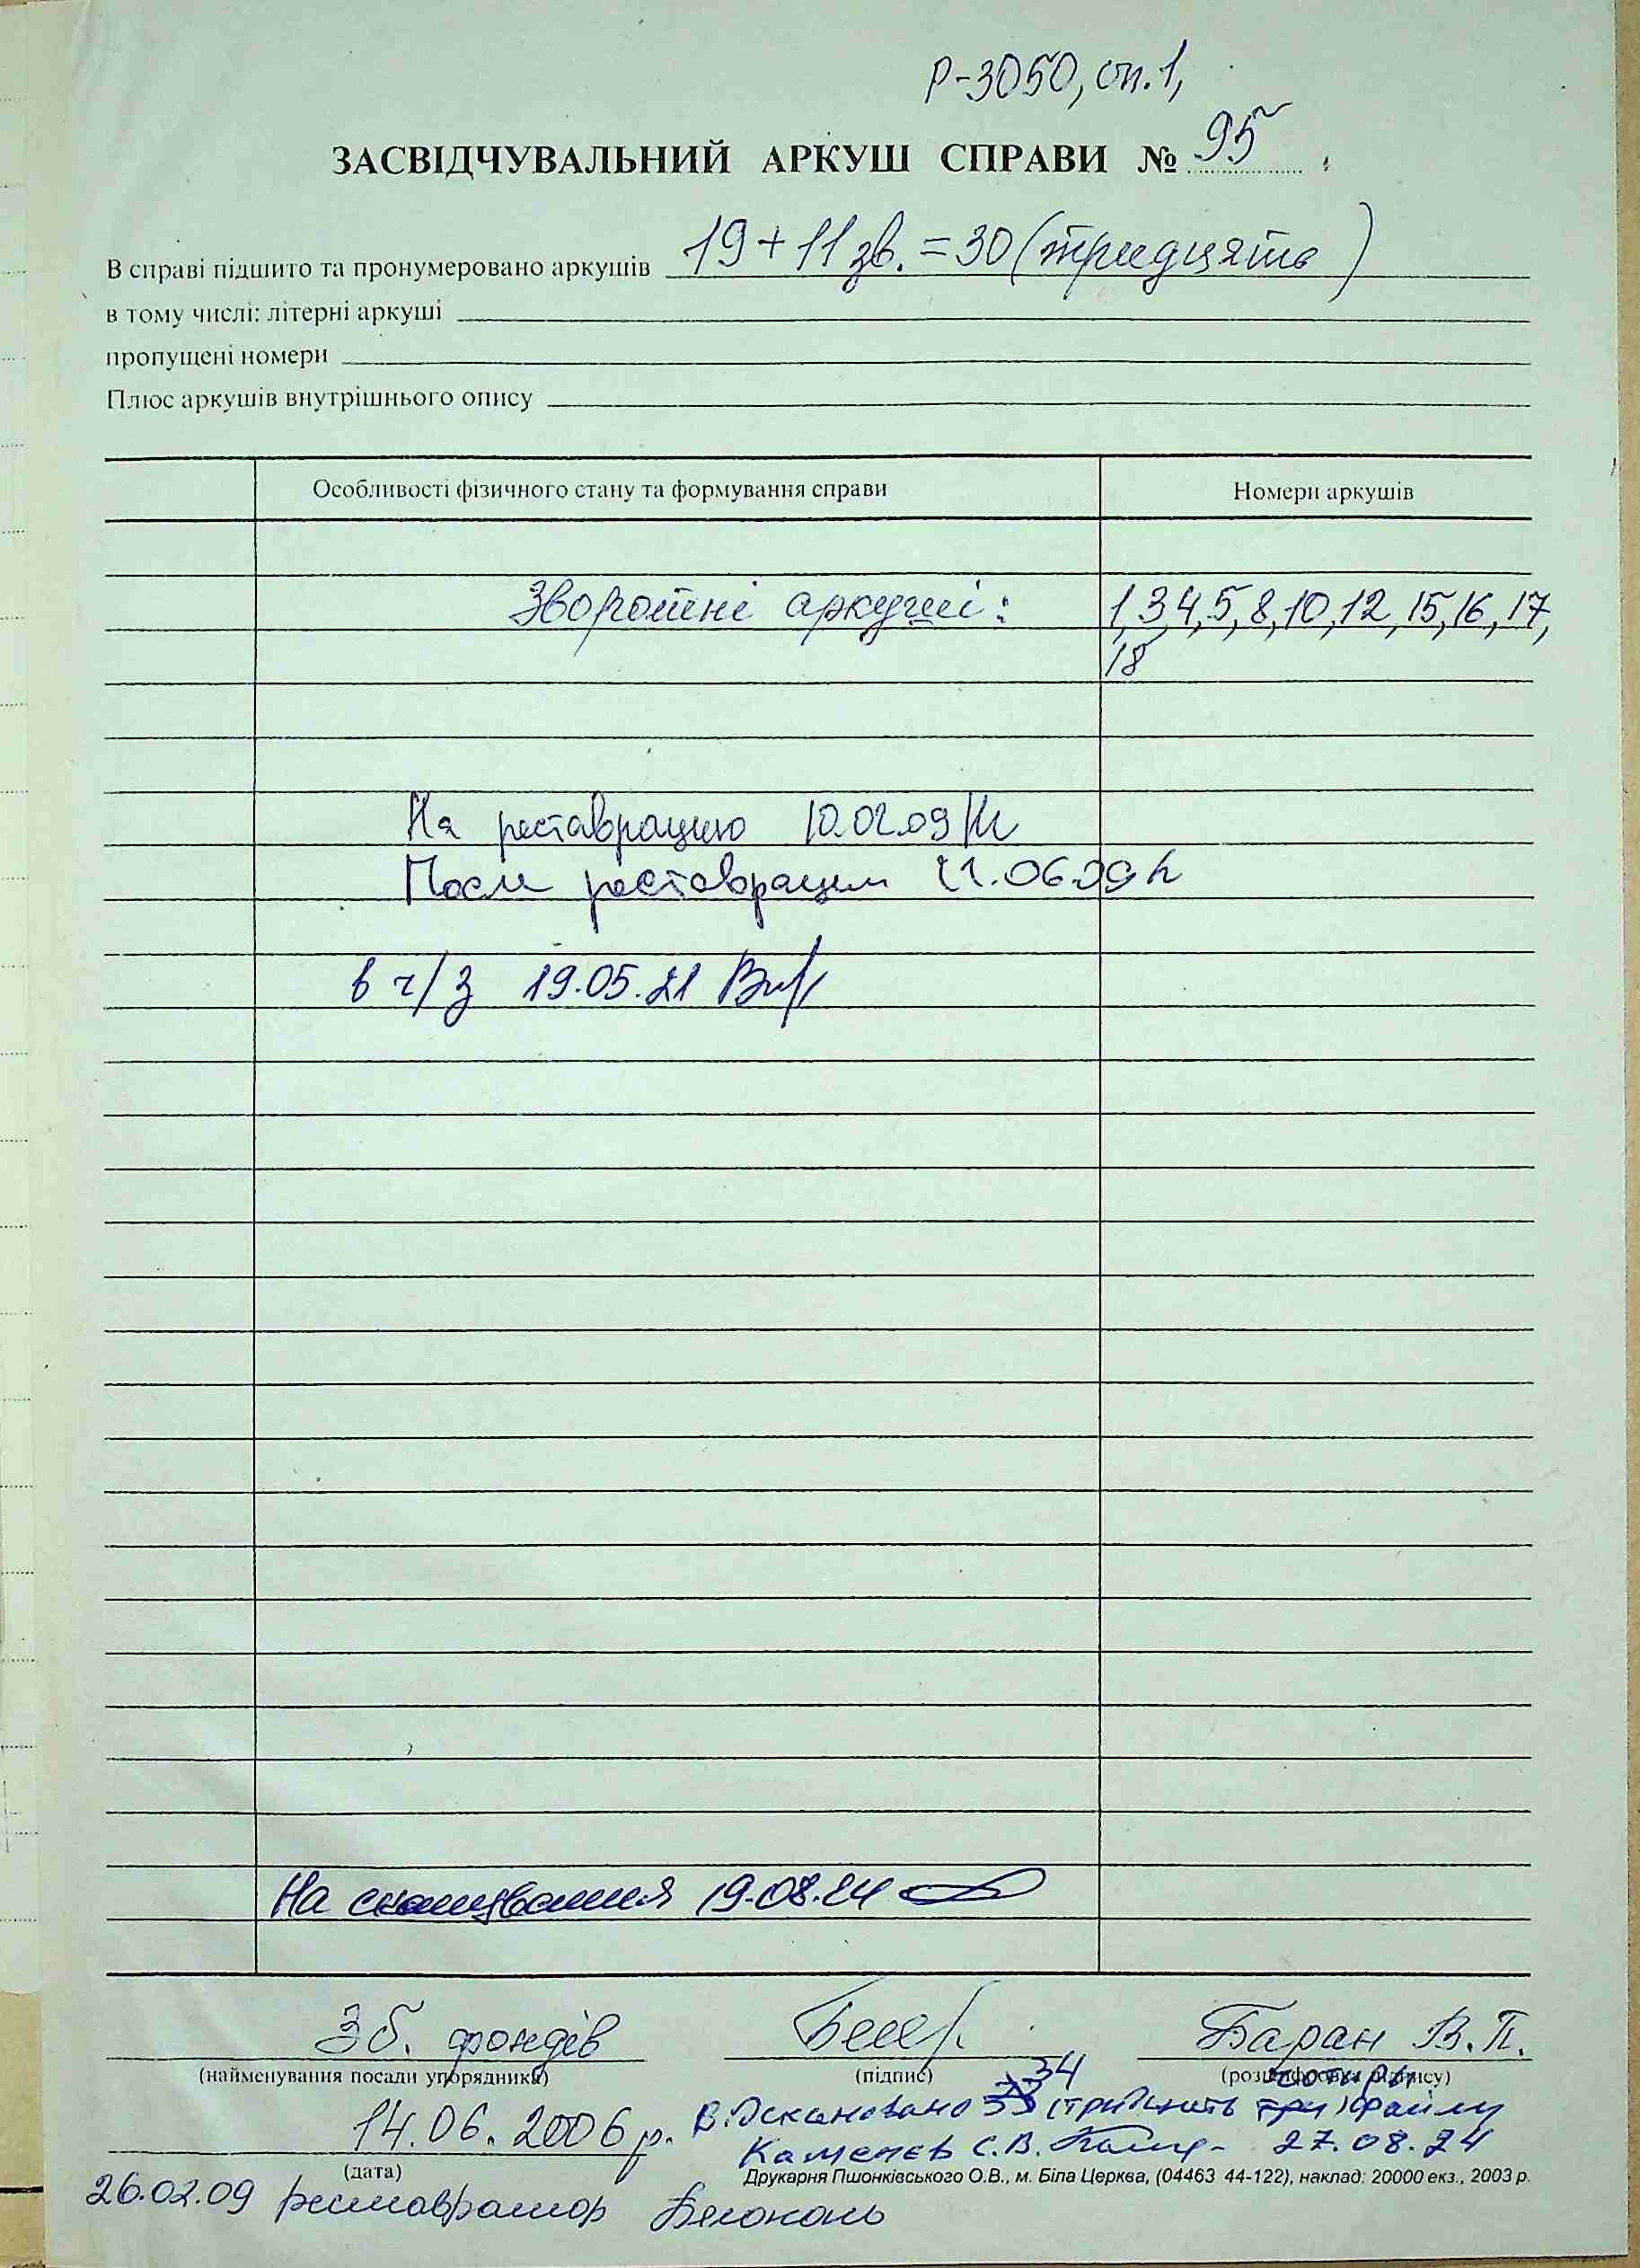 Р-3050, оп.1,
ЗАСВІДЧУВАЛЬНИЙ АРКУШ СПРАВИ № 95
В справі підшито та пронумеровано аркушів 19+11 зв. = 30 (тридцять)
в тому числі: літерні аркуші
пропущені номери
Плюс аркушів внутрішнього опису
Особливості фізичного стану та формування справи Номери аркушів
Зворотні аркуші: 1,3,4,5,8,10,12,15,16,17,
18
На реставрацию 10.02.09
После реставрации 11.06.09
в ч/з 19.05.21
На сканування 19.08.24
Зб. фондів Баран В.П.
(найменування посади упорядника) (підпис) (розшифровка підпису)
34 чотири
14.06.2006 р. Відскановано 33 (тридцять три) файли
Каменєв С.В. 27.08.24
(дата) Друкарня Пшонківського О.В., м. Біла Церква, (04463 44-122), наклад: 20000 екз., 2003 р.
26.02.09 реставратор